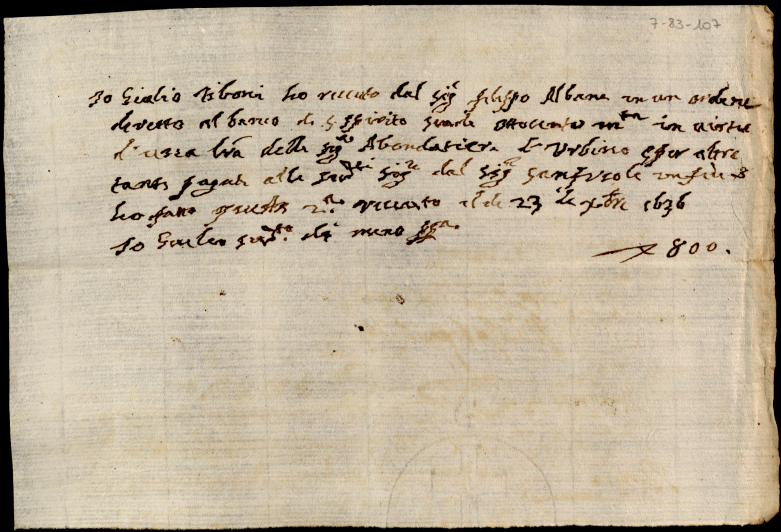 7-83-107
Io Giulio Tiboni ho riceuto dal sig.r filippo Albani in un ordine
diretto al banco di s spirito scudi ottocento m.ta in virtu
d'una lr̃a delli sig.ri Abondatieri d'Urbino e per altre
tanti pagati alli sig.ri dal sig.r
ho fatto questa riceuta il dì 23 di xbre 1636
Io Giulio sud.to di mano pp.a
800.